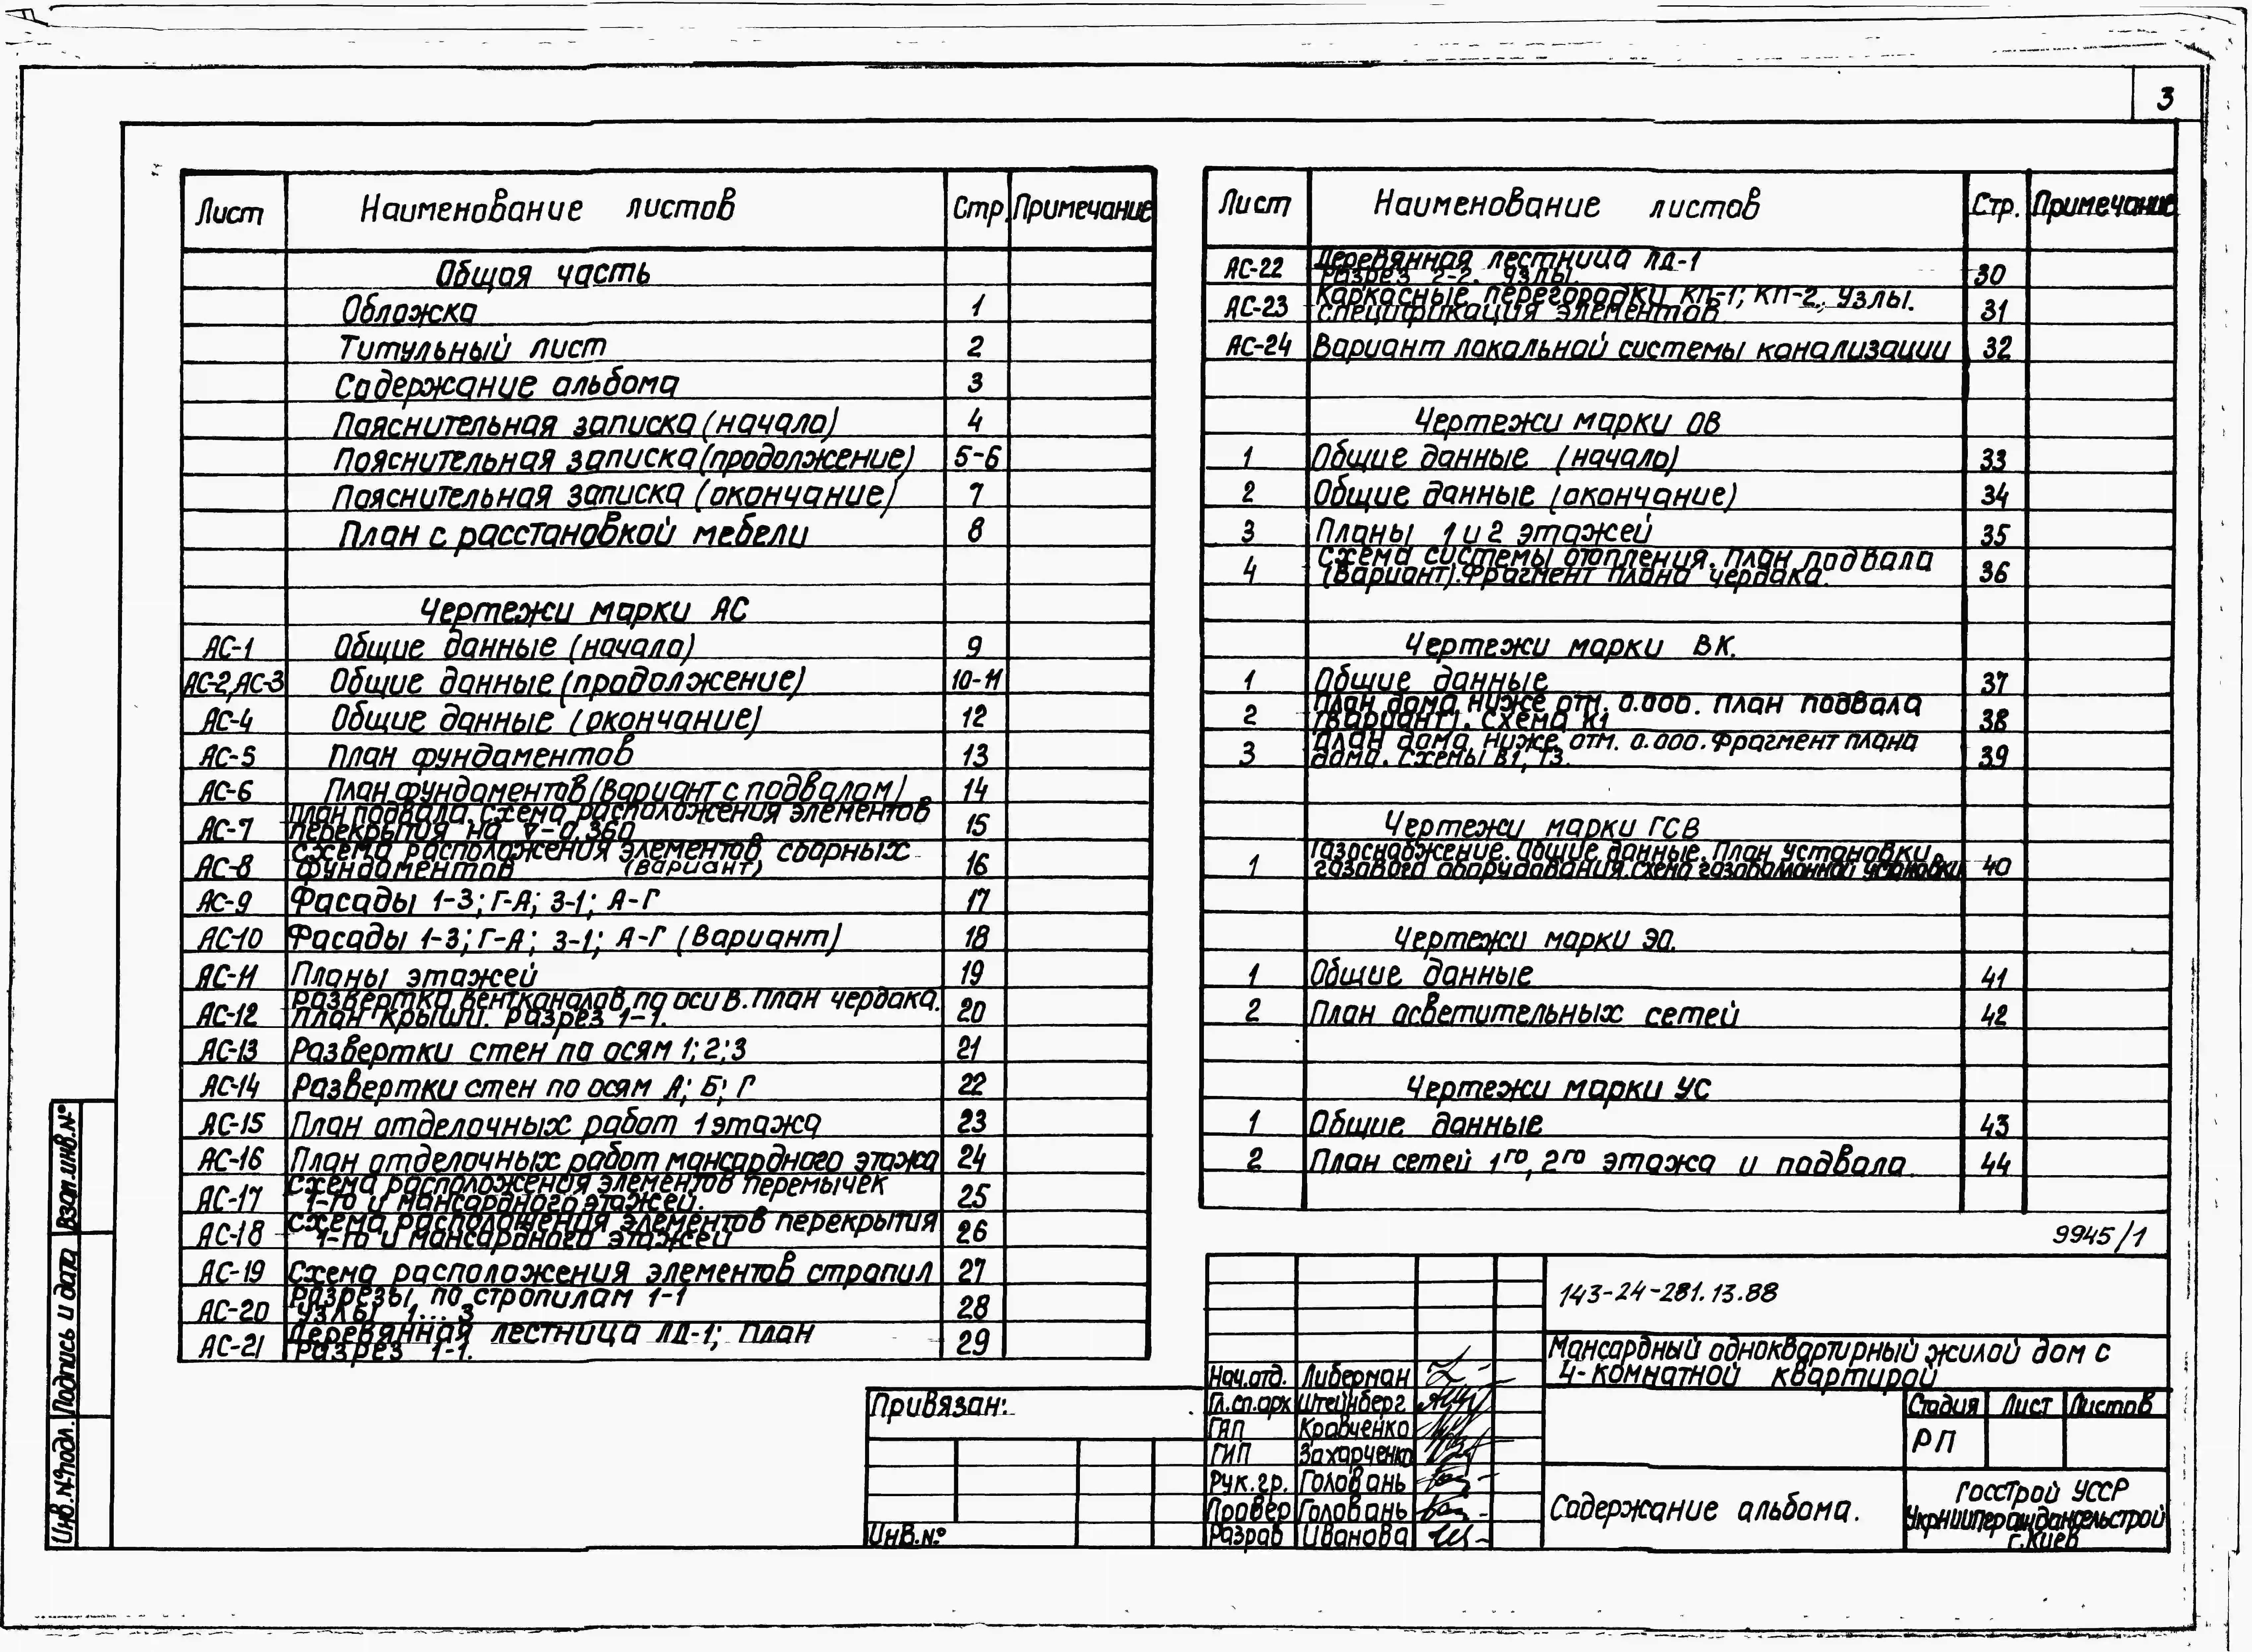 3
Лист Наименование листов Стр. Примечание
Общая часть
Обложка 1
Титульный лист 2
Содержание альбома 3
Пояснительная записка (начало) 4
Пояснительная записка (продолжение) 5-6
Пояснительная записка (окончание) 7
План с расстановкой мебели 8
Чертежи марки АС
АС-1 Общие данные (начало) 9
АС-2, АС-3 Общие данные (продолжение) 10-11
АС-4 Общие данные (окончание) 12
АС-5 План фундаментов 13
АС-6 План фундаментов (Вариант с подвалом) 14
АС-7 План подвала. Схема расположения элементов
перекрытия на ∇-0.360 15
АС-8 Схема расположения элементов сборных
фундаментов (вариант) 16
АС-9 Фасады 1-3; Г-А; 3-1; А-Г 17
АС-10 Фасады 1-3; Г-А; 3-1; А-Г (Вариант) 18
АС-11 Планы этажей 19
АС-12 Развертка вентканалов по оси В. План чердака.
План крыши. Разрез 1-1. 20
АС-13 Развертки стен по осям 1; 2; 3 21
АС-14 Развертки стен по осям А; Б; Г 22
АС-15 План отделочных работ 1 этажа 23
АС-16 План отделочных работ мансардного этажа 24
АС-17 Схема расположения элементов перемычек
1-го и мансардного этажей. 25
АС-18 Схема расположения элементов перекрытия
1-го и мансардного этажей 26
АС-19 Схема расположения элементов стропил 27
АС-20 Разрезы по стропилам 1-1
Узлы 1...3 28
АС-21 Деревянная лестница ЛД-1; план
Разрез 1-1. 29
Лист Наименование листов Стр. Примечание
АС-22 Деревянная лестница ЛД-1
Разрез 2-2. Узлы. 30
АС-23 Каркасные перегородки КП-1; КП-2. Узлы.
Спецификация элементов 31
АС-24 Вариант локальной системы канализации 32
Чертежи марки ОВ
1 Общие данные (начало) 33
2 Общие данные (окончание) 34
3 Планы 1 и 2 этажей 35
4 Схема системы отопления. План подвала
(Вариант). Фрагмент плана чердака. 36
Чертежи марки ВК.
1 Общие данные 37
2 План дома ниже отм. 0.000. План подвала
(вариант). Схема К1 38
3 План дома ниже отм. 0.000. Фрагмент плана
дома. Схемы В1, Т3. 39
Чертежи марки ГСВ
1 Газоснабжение. Общие данные. План установки
газового оборудования. Схема газобалонной установки 40
Чертежи марки ЭО.
1 Общие данные 41
2 План осветительных сетей 42
Чертежи марки УС
1 Общие данные 43
2 План сетей 1го, 2го этажа и подвала. 44
9945/1
143-24-281.13.88
Мансардный одноквартирный жилой дом с
4-комнатной квартирой
Нач.отд. Либерман
Гл.сп.арх Штейнберг
ГАП Кравченко
ГИП Захарченко
Рук.гр. Головань
Провер Головань
Разраб Иванова
Стадия Лист Листов
РП
Содержание альбома.
Госстрой УССР
УкрНИИПграждансельстрой
г.Киев
Привязан:
Инв.№
Взам.инв.№
Подпись и дата
Инв.№ подл.